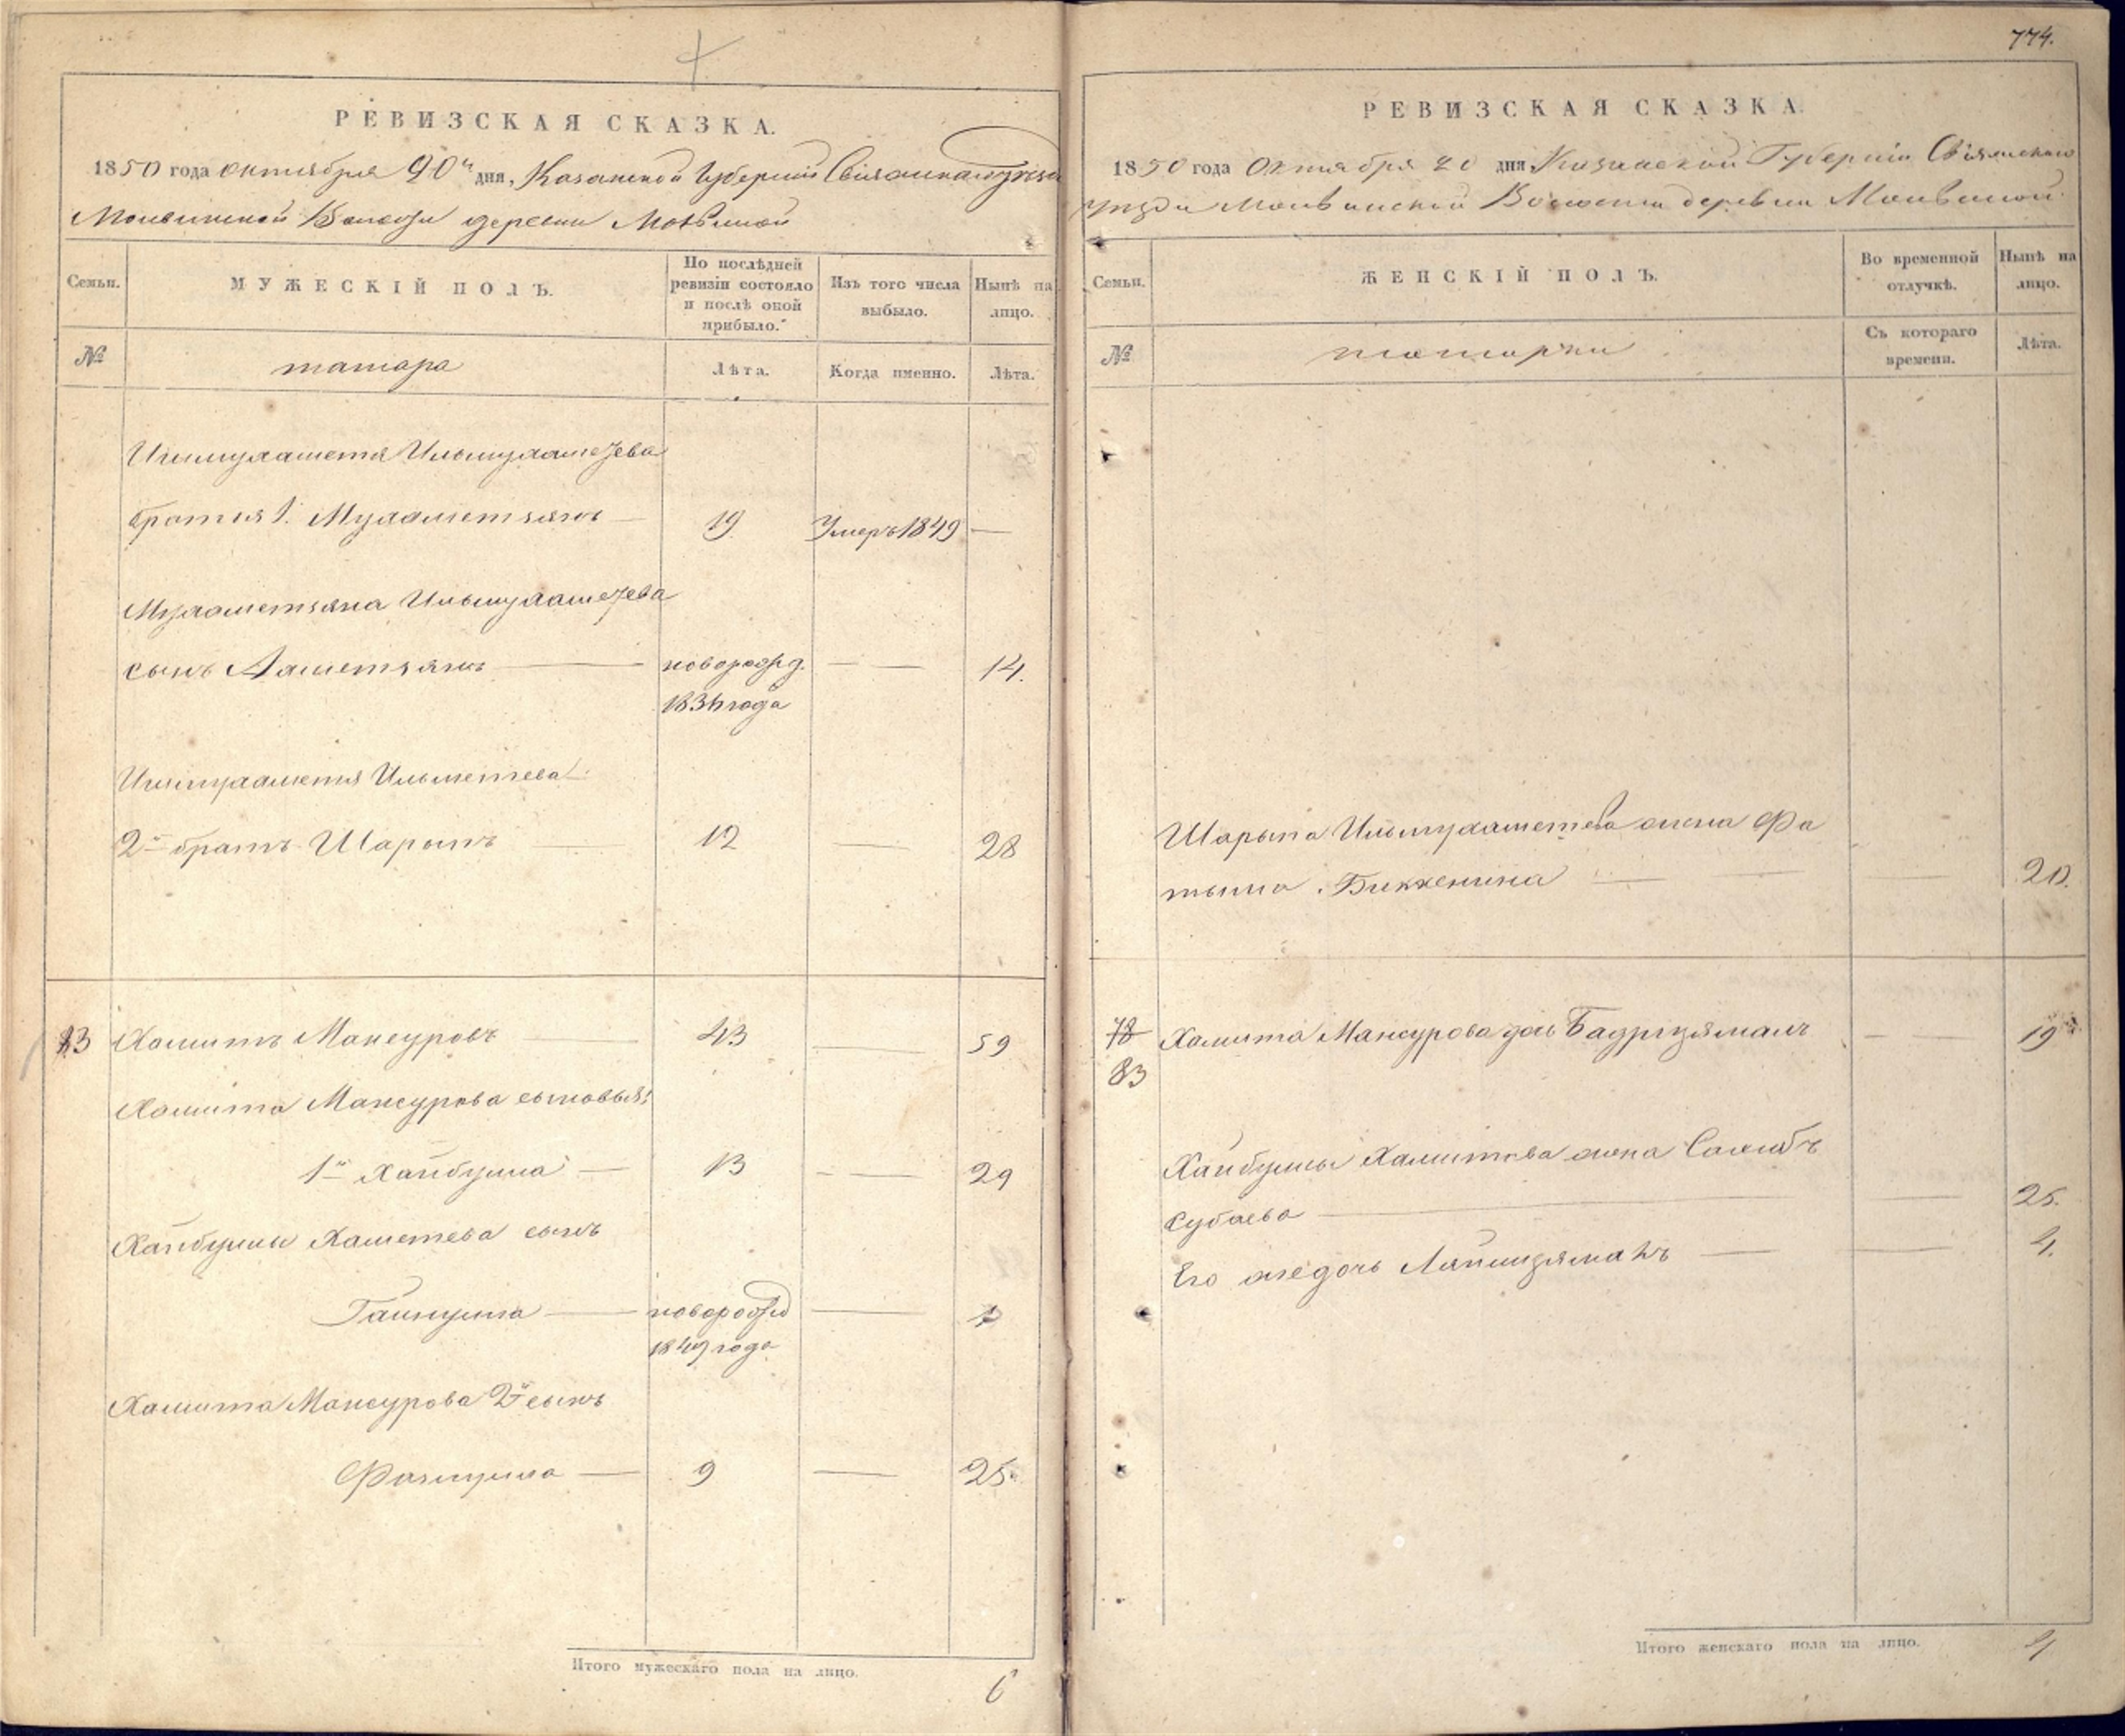 774.
РЕВИЗСКАЯ СКАЗКА.
1850 года октября 20 дня, Казанской Губернии Свіяжскаго уезда
Молвинской Волости деревни Молвиной
Семьи.
МУЖЕСКІЙ ПОЛЪ.
По послѣдней ревизіи состояло и послѣ оной прибыло.
Изъ того числа выбыло.
Нынѣ на лицо.
№
татара
Лѣта.
Когда именно.
Лѣта.
Ишмухаметя Ильмухаметева
братья 1. Мухаметзянъ — 19 Умеръ 1849 —
Мухаметзяна Ильмухаметева
сынъ Ахметзянъ — новорожд. — — 14.
1836 года
Ишмухаметя Ильметева
2й братъ Шарыпъ — 12 — 28
83 Хамитъ Мансуровъ — 43 — 59
Хамита Мансурова сыновья:
1й Хайбулла — 13 — 29
Хайбуллы Хаметева сынъ
Гайнулла — новорожд — 1
1849 года
Хамита Мансурова 2й сынъ
Фазлулла — 9 — 25
Итого мужескаго пола на лицо. 6
РЕВИЗСКАЯ СКАЗКА.
1850 года Октября 20 дня Казанской Губерніи Свіяжскаго
уезда Молвинской Волости деревни Молвиной
Семьи.
ЖЕНСКІЙ ПОЛЪ.
Во временной отлучкѣ.
Нынѣ на лицо.
№
татарки
Съ котораго времени.
Лѣта.
Шарыпа Ильмухаметева жена Фа
тыма Биккенина — 20.
78 Хамита Мансурова дочь Бадригзямалъ — 19
83
Хайбуллы Хамитова жена
Субаева — — 25.
Его же дочь Ляйлизямалъ — — 4.
Итого женскаго пола на лицо. 4